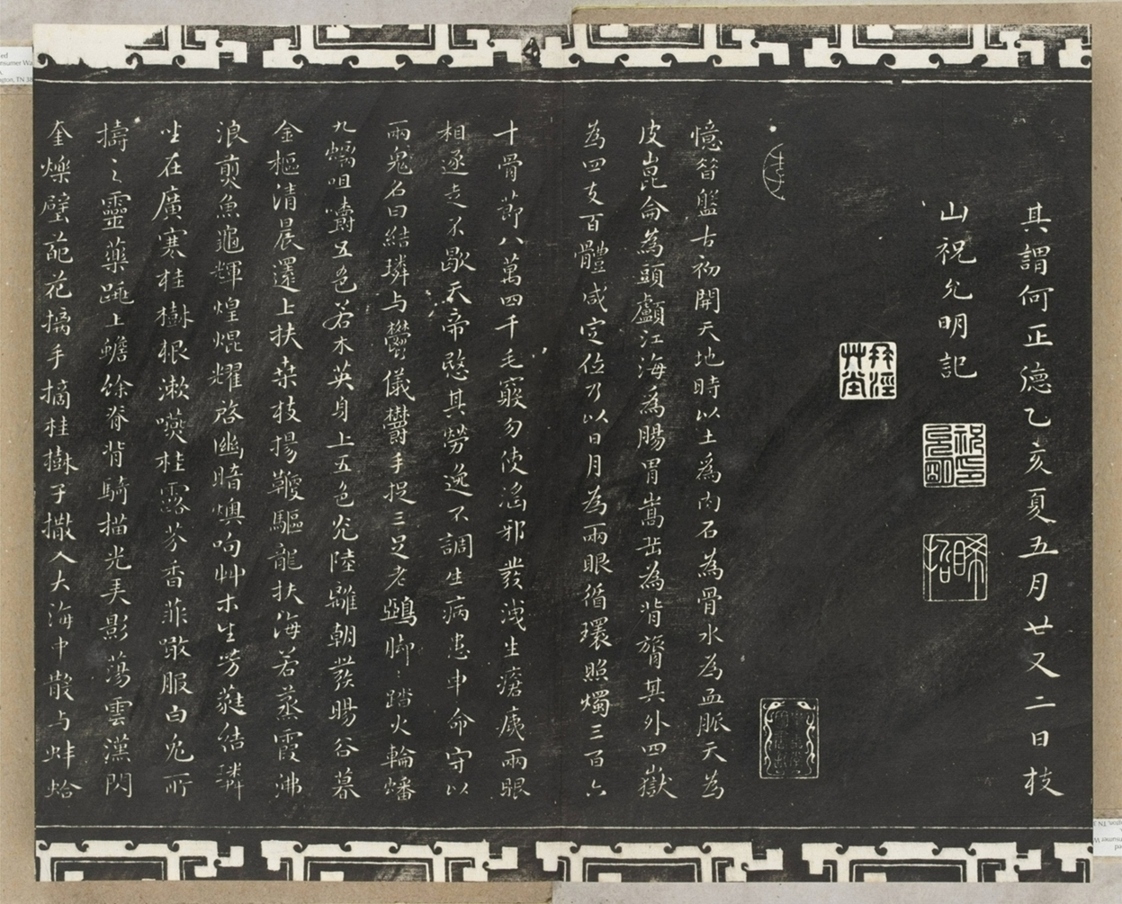 其謂何正德乙亥夏五月廿又二日枝
山祝允明記
憶昔盤古初開天地時以土為肉石為骨水為血脈天為
皮崑侖為頭顱江海為腸胃嵩岳為背膂其外四嶽
為四支百體咸定位乃以日月為兩眼循環照燭三百六
十骨節八萬四千毛竅勿使淫邪發洩生瘡痍兩眼
相逐走不歇天帝愍其勞逸不調生病患申命守以
兩鬼名曰結璘与鬱儀鬱手捉三足老鵶脚二踏火輪蟠
九螭咀嚼五色若木英身上五色光陸離朝發暘谷暮
金樞清晨還上扶桑枝揚鞭驅龍扶海若蒸霞沸
浪煎魚龜輝煌焜耀啓幽暗燠呴艸木生芳蕤結璘
坐在廣寒桂樹根漱嚥桂露芬香菲噉服白兔所
擣之靈藥跳上蟾蜍脊背騎描光美影蕩雲漢閃
奎爍璧葩花摛手摘桂樹子撒入大海中散与蚌蛤